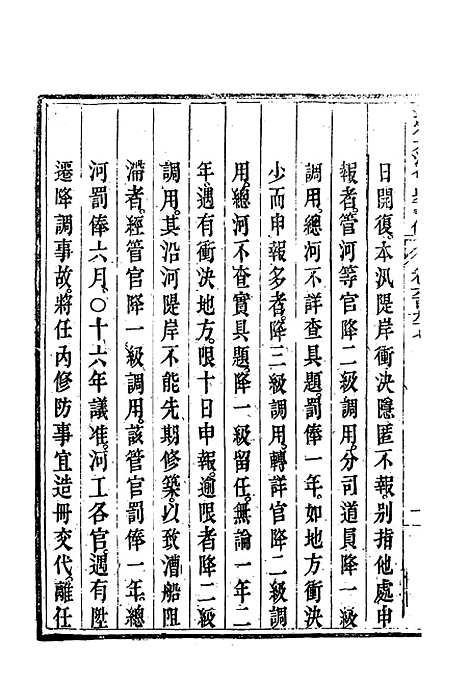 日開復。本汛隄岸衝決隱匿不報。別指他處申
報者。管河等官降二級調用。分司道員降一級
調用。總河不詳查具題。罰俸一年。如地方衝決
少而申報多者。降三級調用。轉詳官降二級調
用。總河不查實具題。降一級留任。無論一年二
年。遇有衝決地方。限十日申報。逾限者降二級
調用。其沿河隄岸不能先期修築。以致漕船阻
滯者。經管官降一級調用。該管官罰俸一年。總
河罰俸六月。○十六年議准。河工各官。遇有陞
遷降調事故。將任內修防事宜造冊交代。離任